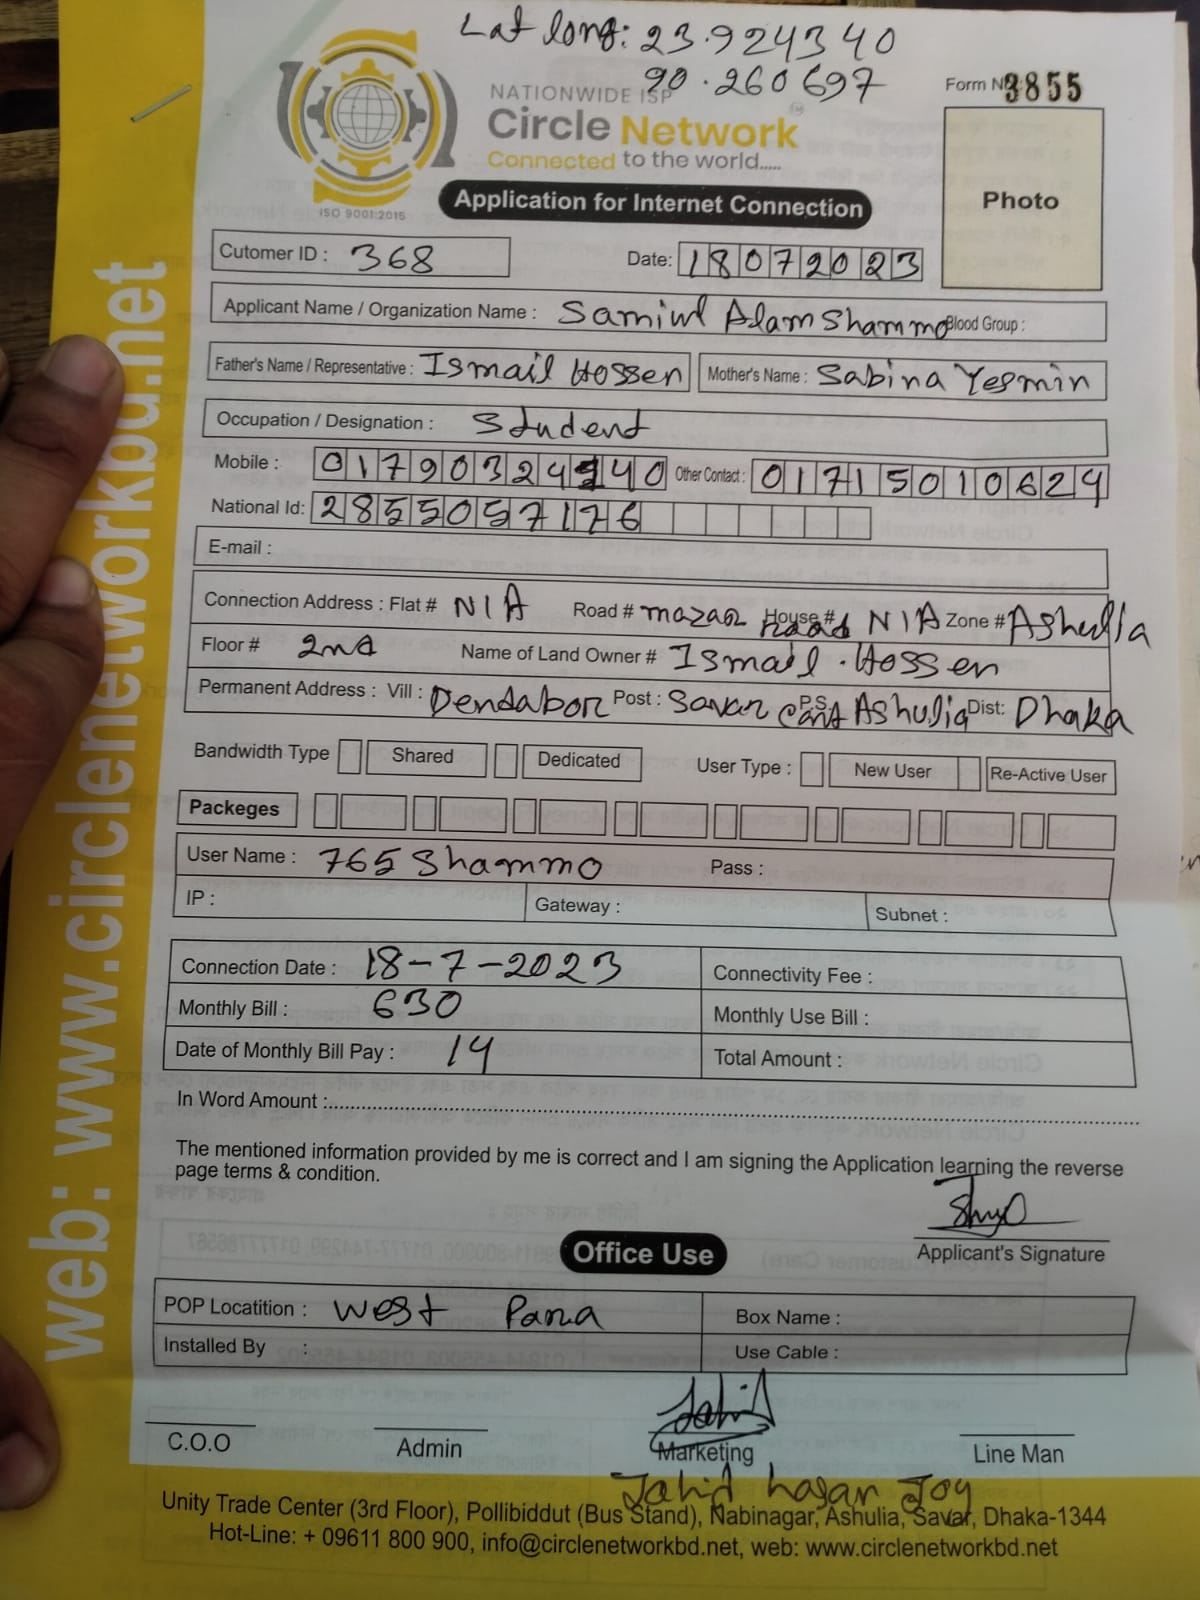 Lat long: 23.924340
90.260697
NATIONWIDE ISP
Form N 3855
Circle Network
Connected to the world.....
ISO 9001:2015
Application for Internet Connection
Photo
Cutomer ID : 368 Date: 18072023
Applicant Name / Organization Name : Samiul Alam Shammo Blood Group :
Father's Name / Representative : Ismail Hossen Mother's Name : Sabina Yesmin
Occupation / Designation : Student
Mobile : 01790324140 Other Contact : 01715010624
National Id: 2855057176
E-mail :
Connection Address : Flat # N/A Road # mazar road House # N/A Zone # Ashulia
Floor # 2nd Name of Land Owner # Ismail Hossen
Permanent Address : Vill : Dendabor Post : Savar Cant P.S Ashulia Dist: Dhaka
Bandwidth Type Shared Dedicated User Type : New User Re-Active User
Packeges
User Name : 765 Shammo Pass :
IP : Gateway : Subnet :
Connection Date : 18-7-2023 Connectivity Fee :
Monthly Bill : 630 Monthly Use Bill :
Date of Monthly Bill Pay : 14 Total Amount :
In Word Amount :
The mentioned information provided by me is correct and I am signing the Application learning the reverse
page terms & condition.
Applicant's Signature
Office Use
POP Locatition : West Para Box Name :
Installed By : Use Cable :
Jahid
C.O.O Admin Marketing Line Man
Jahid hasan Joy
Unity Trade Center (3rd Floor), Pollibiddut (Bus Stand), Nabinagar, Ashulia, Savar, Dhaka-1344
Hot-Line: + 09611 800 900, info@circlenetworkbd.net, web: www.circlenetworkbd.net
web: www.circlenetworkbd.net